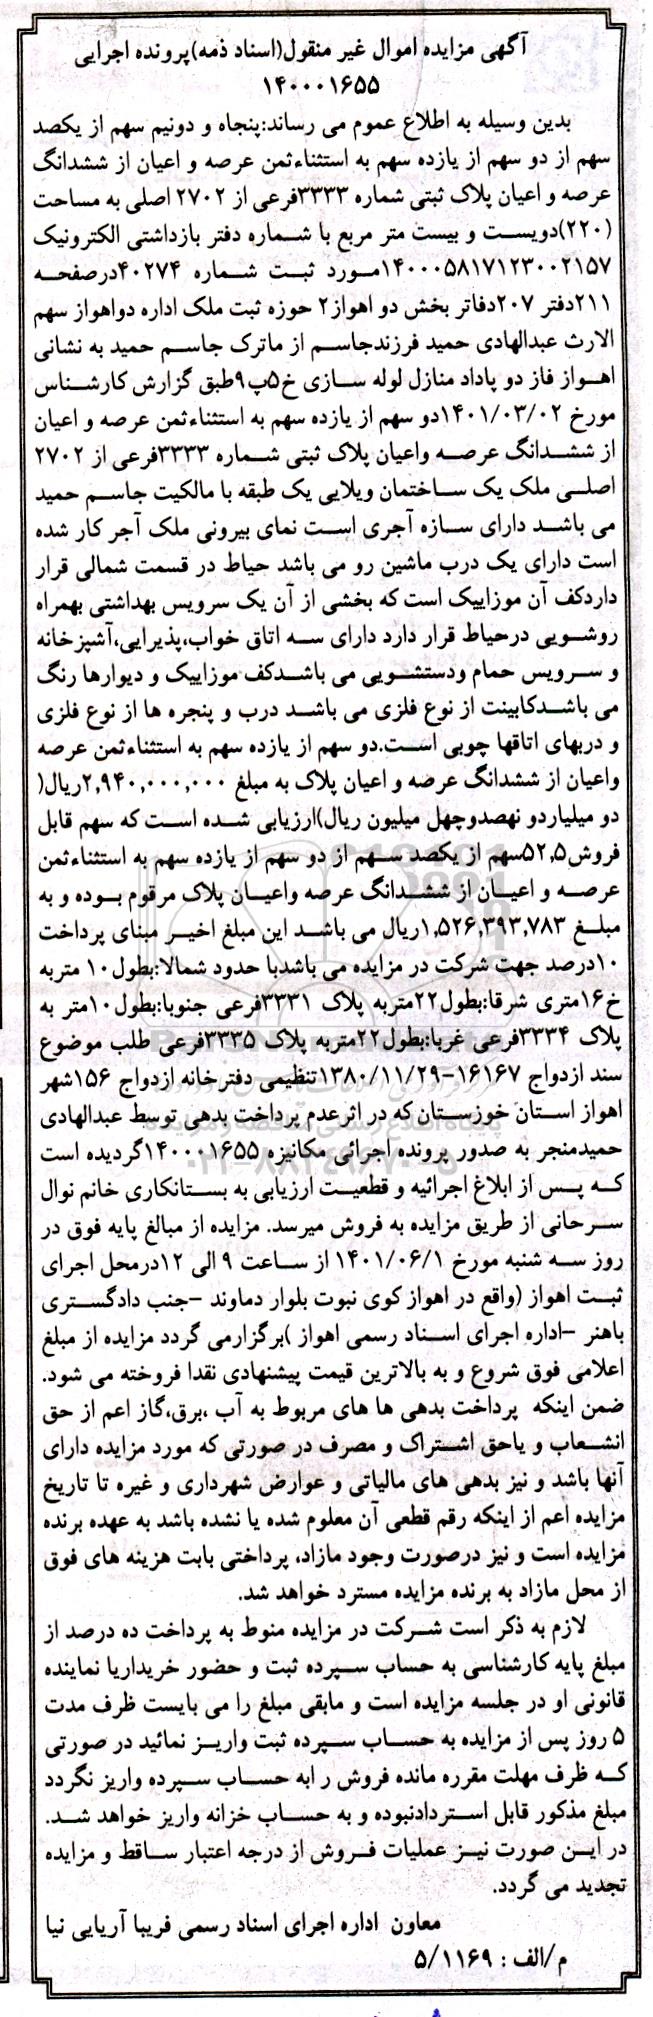 آگهی مزایده اموال غیر منقول(اسناد ذمه)پرونده اجرایی
۱۴۰۰۰۱۶۵۵
بدین وسیله به اطلاع عموم می رساند:پنجاه و دونیم سهم از یکصد
سهم از دو سهم از یازده سهم به استثناءثمن عرصه و اعیان از ششدانگ
عرصه و اعیان پلاک ثبتی شماره ۳۳۳۳فرعی از ۲۷۰۲ اصلی به مساحت
(۲۲۰)دویست و بیست متر مربع با شماره دفتر بازداشتی الکترونیک
۱۴۰۰۰۵۸۱۷۱۲۳۰۰۲۱۵۷مورد ثبت شماره ۴۰۲۷۴درصفحه
۲۱۱دفتر ۲۰۷دفاتر بخش دو اهواز۲ حوزه ثبت ملک اداره دواهواز سهم
الارث عبدالهادی حمید فرزندجاسم از ماترک جاسم حمید به نشانی
اهواز فاز دو پاداد منازل لوله سازی خ۵پ۹طبق گزارش کارشناس
مورخ ۱۴۰۱/۰۳/۰۲دو سهم از یازده سهم به استثناءثمن عرصه و اعیان
از ششدانگ عرصه واعیان پلاک ثبتی شماره ۳۳۳۳فرعی از ۲۷۰۲
اصلی ملک یک ساختمان ویلایی یک طبقه با مالکیت جاسم حمید
می باشد دارای سازه آجری است نمای بیرونی ملک آجر کار شده
است دارای یک درب ماشین رو می باشد حیاط در قسمت شمالی قرار
داردکف آن موزاییک است که بخشی از آن یک سرویس بهداشتی بهمراه
روشویی درحیاط قرار دارد دارای سه اتاق خواب،پذیرایی،آشپزخانه
و سرویس حمام ودستشویی می باشدکف موزاییک و دیوارها رنگ
می باشدکابینت از نوع فلزی می باشد درب و پنجره ها از نوع فلزی
و دربهای اتاقها چوبی است.دو سهم از یازده سهم به استثناءثمن عرصه
واعیان از ششدانگ عرصه و اعیان پلاک به مبلغ ۲,۹۴۰,۰۰۰,۰۰۰ریال(
دو میلیاردو نهصدوچهل میلیون ریال)ارزیابی شده است که سهم قابل
فروش۵۲,۵سهم از یکصد سهم از دو سهم از یازده سهم به استثناءثمن
عرصه و اعیان از ششدانگ عرصه واعیان پلاک مرقوم بوده و به
مبلغ ۱,۵۲۶,۳۹۳,۷۸۳ریال می باشد این مبلغ اخیر مبنای پرداخت
۱۰درصد جهت شرکت در مزایده می باشدبا حدود شمالا:بطول۱۰ متربه
خ۱۶متری شرقا:بطول۲۲متربه پلاک ۳۳۳۱فرعی جنوبا:بطول۱۰متر به
پلاک ۳۳۳۴فرعی غربا:بطول۲۲متربه پلاک ۳۳۳۵فرعی طلب موضوع
سند ازدواج ۱۶۱۶۷-۱۳۸۰/۱۱/۲۹تنظیمی دفترخانه ازدواج ۱۵۶شهر
اهواز استان خوزستان که در اثرعدم پرداخت بدهی توسط عبدالهادی
حمیدمنجر به صدور پرونده اجرائی مکانیزه ۱۴۰۰۰۱۶۵۵گردیده است
که پس از ابلاغ اجرائیه و قطعیت ارزیابی به بستانکاری خانم نوال
سرحانی از طریق مزایده به فروش میرسد. مزایده از مبالغ پایه فوق در
روز سه شنبه مورخ ۱۴۰۱/۰۶/۱ از ساعت ۹ الی ۱۲درمحل اجرای
ثبت اهواز (واقع در اهواز کوی نبوت بلوار دماوند -جنب دادگستری
باهنر -اداره اجرای اسناد رسمی اهواز )برگزارمی گردد مزایده از مبلغ
اعلامی فوق شروع و به بالاترین قیمت پیشنهادی نقدا فروخته می شود.
ضمن اینکه پرداخت بدهی ها های مربوط به آب ،برق،گاز اعم از حق
انشعاب و یاحق اشتراک و مصرف در صورتی که مورد مزایده دارای
آنها باشد و نیز بدهی های مالیاتی و عوارض شهرداری و غیره تا تاریخ
مزایده اعم از اینکه رقم قطعی آن معلوم شده یا نشده باشد به عهده برنده
مزایده است و نیز درصورت وجود مازاد، پرداختی بابت هزینه های فوق
از محل مازاد به برنده مزایده مسترد خواهد شد.
لازم به ذکر است شرکت در مزایده منوط به پرداخت ده درصد از
مبلغ پایه کارشناسی به حساب سپرده ثبت و حضور خریداریا نماینده
قانونی او در جلسه مزایده است و مابقی مبلغ را می بایست ظرف مدت
۵ روز پس از مزایده به حساب سپرده ثبت واریز نمائید در صورتی
که ظرف مهلت مقرره مانده فروش رابه حساب سپرده واریز نگردد
مبلغ مذکور قابل استردادنبوده و به حساب خزانه واریز خواهد شد.
در این صورت نیز عملیات فروش از درجه اعتبار ساقط و مزایده
تجدید می گردد.
معاون اداره اجرای اسناد رسمی فریبا آریایی نیا
م/الف : ۵/۱۱۶۹